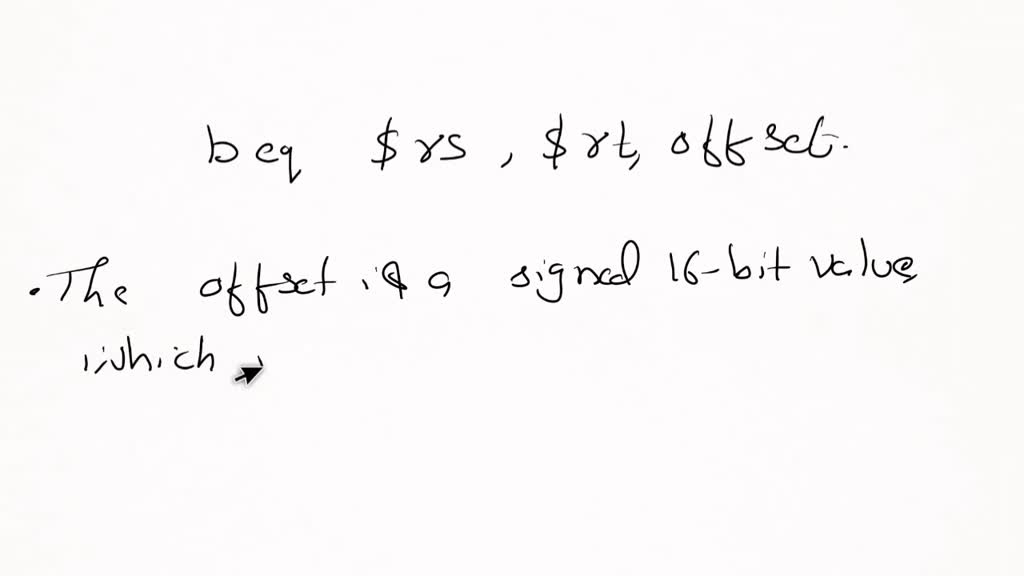 beq $rs, $rt, offset.
• The offset is a signed 16-bit value
which